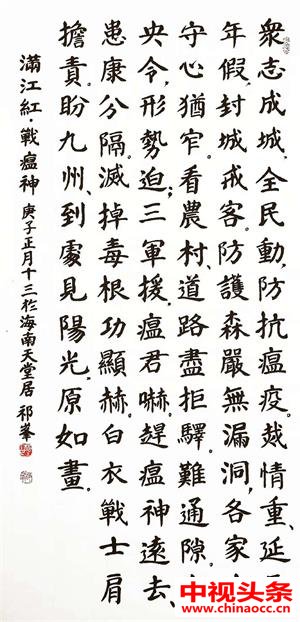 眾志成城,全民動,防抗瘟疫。情重、延
年假,封城戒客。防護森嚴無漏洞,各家
守心猶窄。看農村、道路盡拒驛。難通隙、
央令,形勢迫;三軍援,瘟君嚇。趕瘟神遠去、
患康分隔。滅掉毒根功顯赫。白衣戰士肩
擔責。盼九州、到處見陽光,原如畫。
滿江紅·戰瘟神 庚子正月十三於海南天堂居 祁峯
中视头条
www.chinaocc.cn